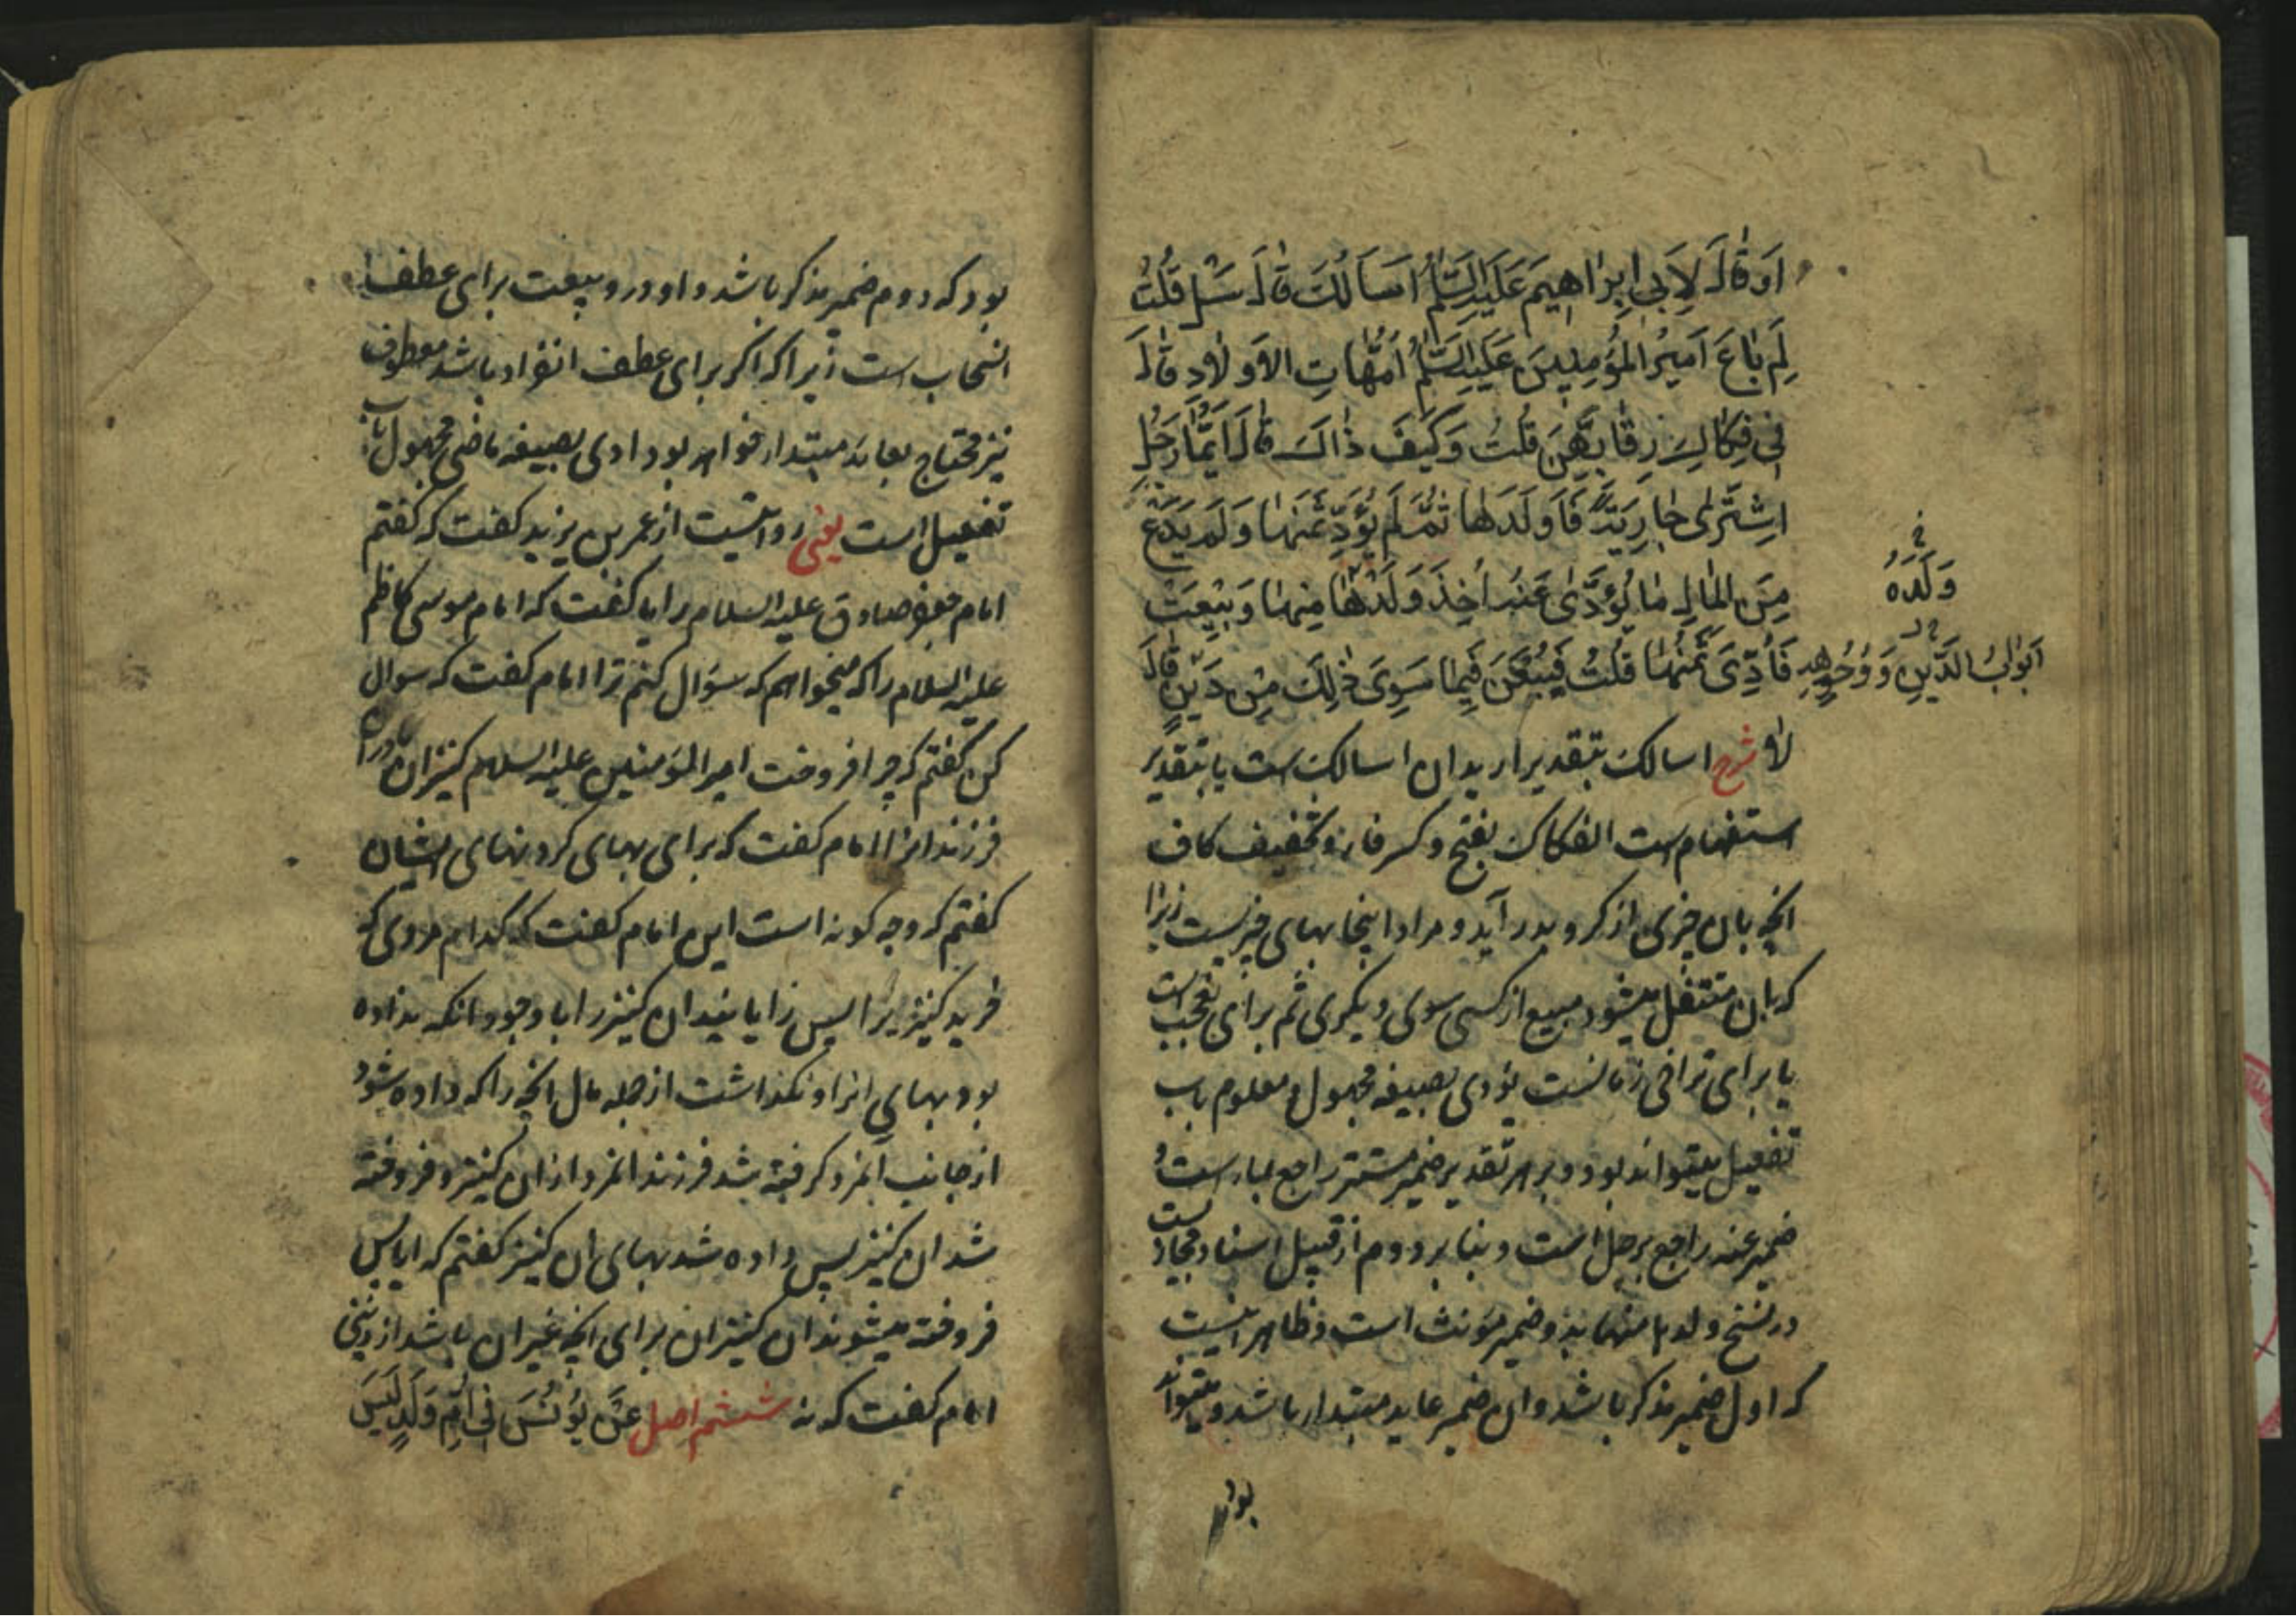 اَوْ قَالَ لِاَبِي اِبْرَاهِيمَ عَلَيْهِ السَّلٰمُ اَسْاَلُكَ قَالَ سَلْ قُلْتُ
لِمَ بَاعَ اَمِيرُ الْمُؤْمِنِينَ عَلَيْهِ السَّلٰمُ اُمَّهَاتِ الْاَوْلَادِ قَالَ
فِي فِكَاكِ رِقَابِهِنَّ قُلْتُ وَكَيْفَ ذَاكَ قَالَ اَيُّمَا رَجُلٍ
اِشْتَرٰى جَارِيَةً فَاَوْلَدَهَا ثُمَّ لَمْ يُؤَدِّ ثَمَنَهَا وَلَمْ يَدَعْ
مِنَ الْمَالِ مَا يُؤَدّٰى عَنْهُ اُخِذَ وَلَدُهَا مِنْهَا وَبِيْعَتْ
وَلَدُهُ
فَاُدِّىَ ثَمَنُهَا قُلْتُ فَيُبَعْنَ فِيمَا سِوٰى ذٰلِكَ مِنْ دَيْنٍ قَالَ
اَبْوَابُ الدَّيْنِ وَ وُجُوهِهِ
لَا شرح اسالک بتقدیر ارید ان اسالک است یا بتقدیر
استفهام است الفکاک بفتح و کسر فاء و تخفیف کاف
انچه بان چیزی از کرو بدر آید و مراد اینجا بهای چیزیست زیرا
که بان منتقل میشود مبیع از کسی سوی دیکری ثم برای تعجب است
یا برای تراخی زمانست یؤدی بصیغه مجهول و معلوم باب
تفعیل میتواند بود و بر هر تقدیر ضمیر مستتر راجع بما است و
ضمیر عنه راجع برجل است و بنابر دوم از قبیل اسناد مجازیست
در نسخ ولدها منها بدو ضمیر مؤنث است و ظاهر اینست
که اول ضمیر مذکر باشد و ان ضمیر عاید مبتدا باشد و میتواند
بود
بود که دوم ضمیر مذکر باشد و او در و بیعت برای عطف
انسحاب است زیرا که اکر برای عطف انفراد باشد معطوف
نیز محتاج بعاید مبتدا خواهد بود ادی بصیغه ماضی مجهول باب
تفعیل است یعنی روایتست از عمر بن یزید کفت که کفتم
امام جعفر صادق علیه السلام را یا کفت که امام موسی کاظم
علیه السلام را که میخواهم که سؤال کنم ترا امام کفت که سوال
کن کفتم که چرا فروخت امیر المؤمنین علیه السلام کنیزان مادران
فرزندانرا امام کفت که برای بهای کردنهای ایشان
کفتم که و چه کونه است این امام کفت که کدام مردی که
خرید کنیزیرا پس زایانید ان کنیز را با وجود انکه نداده
بود بهای انرا و نکذاشت از جمله مال انچه را که داده شود
از جانب آنمرد کرفته شد فرزند انمرد از ان کنیز و فروخته
شد ان کنیز پس داده شد بهای ان کنیز کفتم که ایا پس
فروخته میشوند ان کنیزان برای انچه غیر ان باشد از دینی
امام کفت که نه ششم اصل عَنْ يُونُسَ فِي اُمِّ وَلَدٍ لَيْسَ